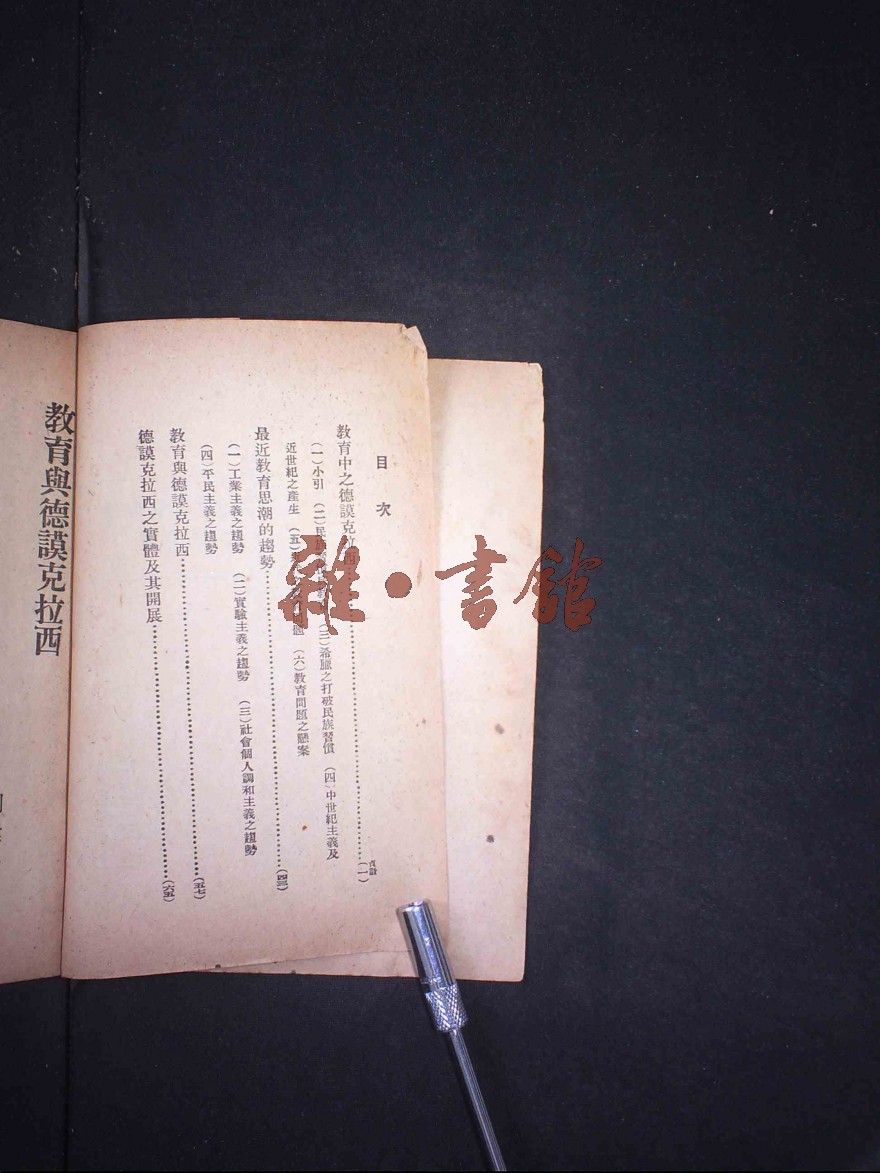 目次
教育中之德謨克拉……(一)
頁數
(一)小引 (二)民 (三)希臘之打破民族習慣 (四)中世紀主義及
近世紀之產生 (五) 題 (六)教育問題之懸案
最近教育思潮的趨勢……(四三)
(一)工業主義之趨勢 (二)實驗主義之趨勢 (三)社會個人調和主義之趨勢
(四)平民主義之趨勢
教育與德謨克拉西……(五七)
德謨克拉西之實體及其開展……(六五)
教育與德謨克拉西
雜·書館